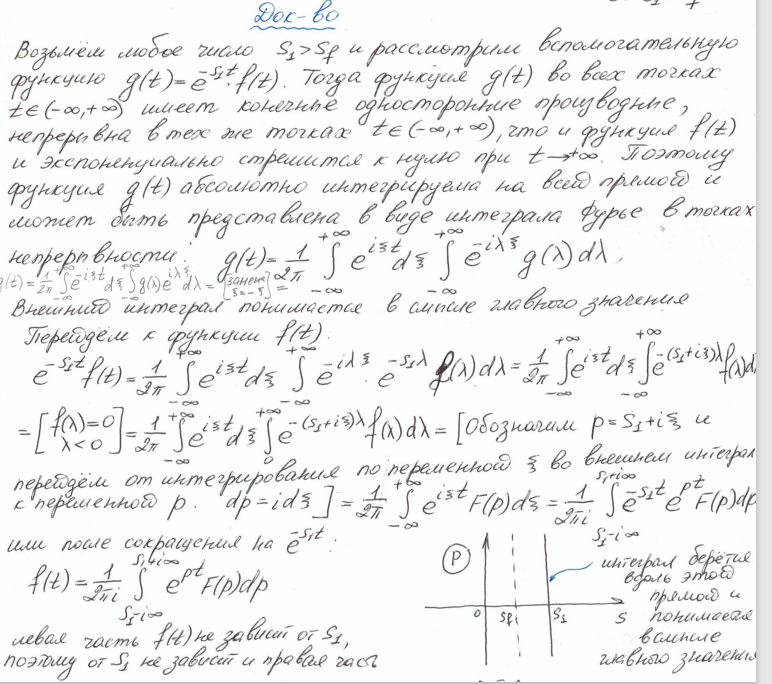 Док-во
Возьмём любое число S₁>S_f и рассмотрим вспомогательную
функцию g(t)=e^{-S₁t}·f(t). Тогда функция g(t) во всех точках
t∈(-∞,+∞) имеет конечные односторонние производные,
непрерывна в тех же точках t∈(-∞,+∞), что и функция f(t)
и экспоненциально стремится к нулю при t→+∞. Поэтому
функция g(t) абсолютно интегрируема на всей прямой и
может быть представлена в виде интеграла Фурье в точках
непрерывности: g(t)=1/2π ∫_{-∞}^{+∞} e^{iξt}dξ ∫_{-∞}^{+∞} e^{-iλξ} g(λ)dλ,
g(t)=1/2π ∫_{-∞}^{+∞} e^{-iξt}dξ ∫_{-∞}^{+∞} g(λ)e^{iλξ}dλ = [замена ξ=-ξ] =
Внешний интеграл понимается в смысле главного значения
Перейдём к функции f(t).
e^{-S₁t}f(t)=1/2π ∫_{-∞}^{+∞} e^{iξt}dξ ∫_{-∞}^{+∞} e^{-iλξ}·e^{-S₁λ} f(λ)dλ=1/2π ∫_{-∞}^{+∞} e^{iξt}dξ ∫_{-∞}^{+∞} e^{-(S₁+iξ)λ} f(λ)d
=[f(λ)=0 λ<0]=1/2π ∫_{-∞}^{+∞} e^{iξt}dξ ∫_{0}^{+∞} e^{-(S₁+iξ)λ} f(λ)dλ=[Обозначим p=S₁+iξ и
перейдём от интегрирования по переменной ξ во внешнем интеграл
к переменной p. dp=idξ]=1/2π ∫_{-∞}^{+∞} e^{iξt}F(p)dξ=1/2πi ∫_{S₁-i∞}^{S₁+i∞} e^{-S₁t} e^{pt} F(p)dp
или после сокращения на e^{-S₁t}:
f(t)=1/2πi ∫_{S₁-i∞}^{S₁+i∞} e^{pt}F(p)dp
левая часть f(t) не зависит от S₁,
поэтому от S₁ не зависит и правая часть
P
0 S_f S₁ S
интеграл берётся
вдоль этой
прямой и
понимается
в смысле
главного значения